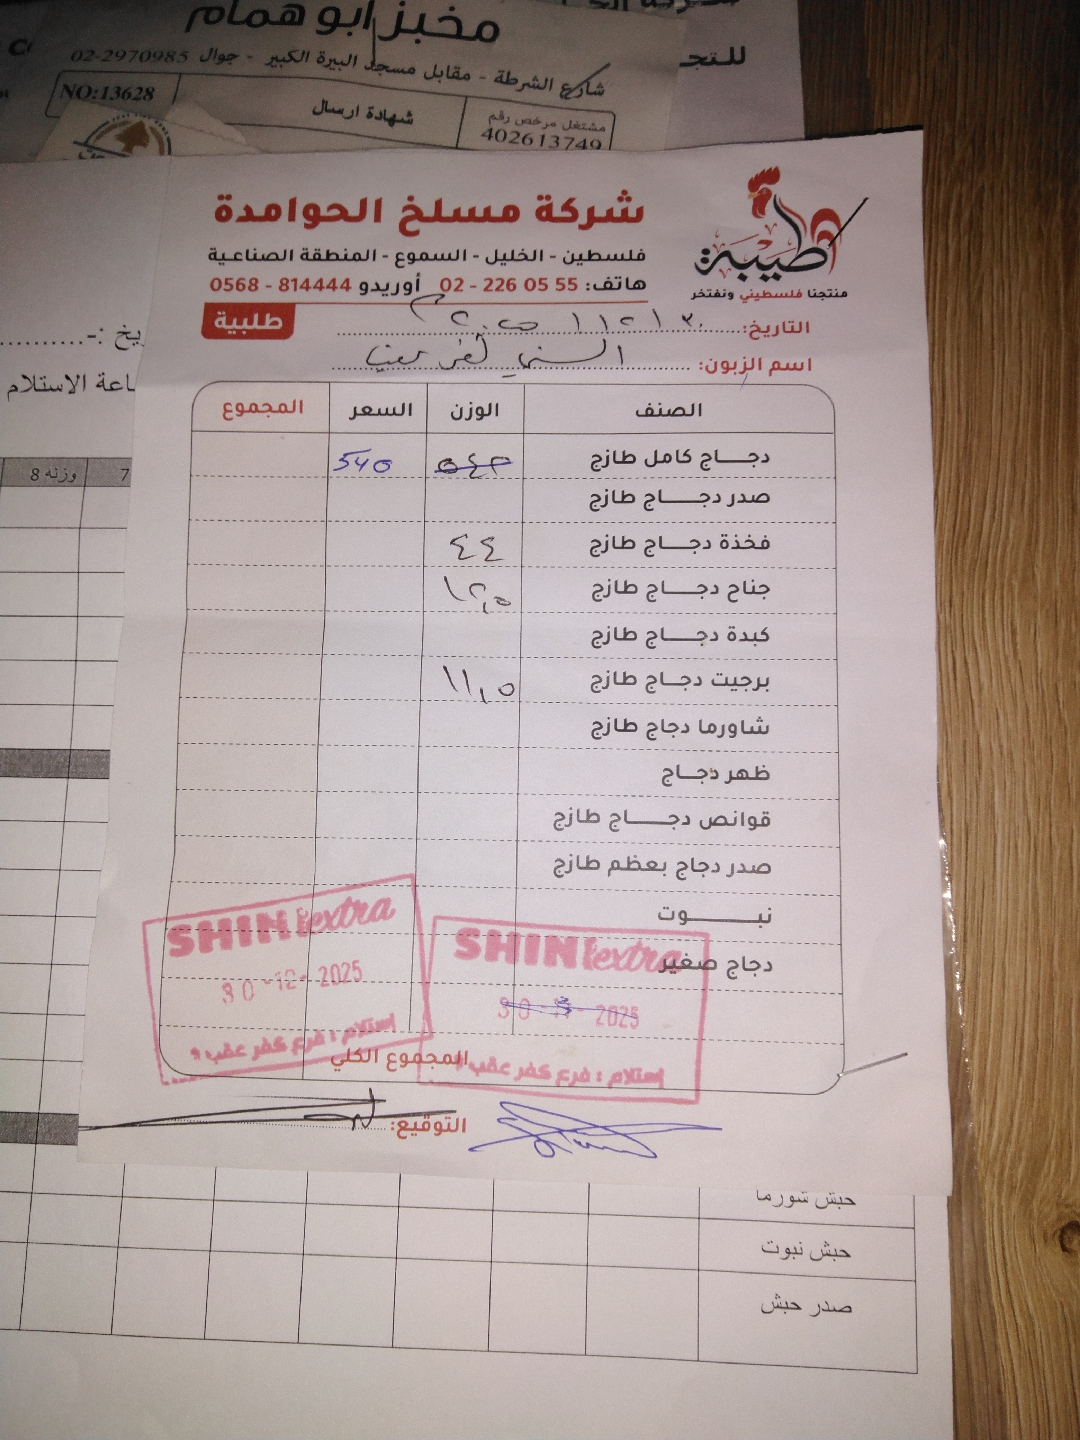 مخبز ابو همام
شارع الشرطة - مقابل مسجد البيرة الكبير - جوال 02-2970985
للتجـ
NO:13628
شهادة ارسال
مشتغل مرخص رقم
402613749
شركة مسلخ الحوامدة
فلسطين - الخليل - السموع - المنطقة الصناعية
هاتف: 02 - 226 05 55 أوريدو 0568 - 814444
طيبة
منتجنا فلسطيني ونفتخر
طلبية
التاريخ: ٣٠ / ١٢ / ٢٠٢٥
اسم الزبون: الشني كفر عقب
الصنف الوزن السعر المجموع
دجـــاج كامل طازج ٥٤٣ 540
صدر دجــــاج طازج
فخذة دجــــاج طازج ٤٤
جناح دجــــاج طازج ١٢,٥
كبدة دجــــاج طازج
برجيت دجــــاج طازج ١١,٥
شاورما دجاج طازج
ظهر دجــــاج
قوانص دجــــاج طازج
صدر دجاج بعظم طازج
نبـــــــوت
دجاج صغير
SHINI extra
30 -12- 2025
إستلام : فرع كفر عقب
SHINI extra
30 2025
إستلام : فرع كفر عقب
المجموع الكلي
التوقيع:
ـاريخ :-
ـاعة الاستلام
7
وزنه 8
حبش شورما
حبش نبوت
صدر حبش